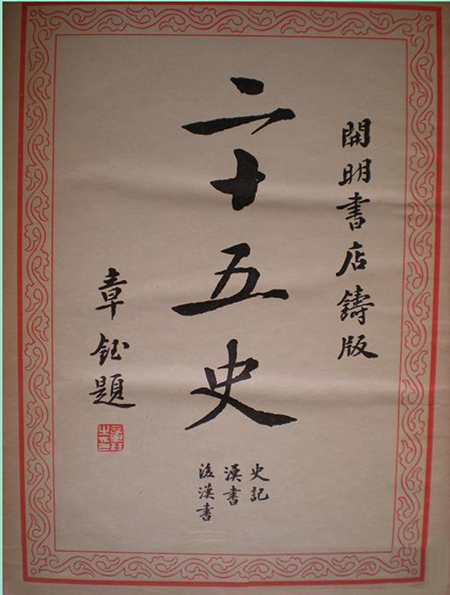 開明書店鑄版
二十五史
史記
漢書
後漢書
章鈺題